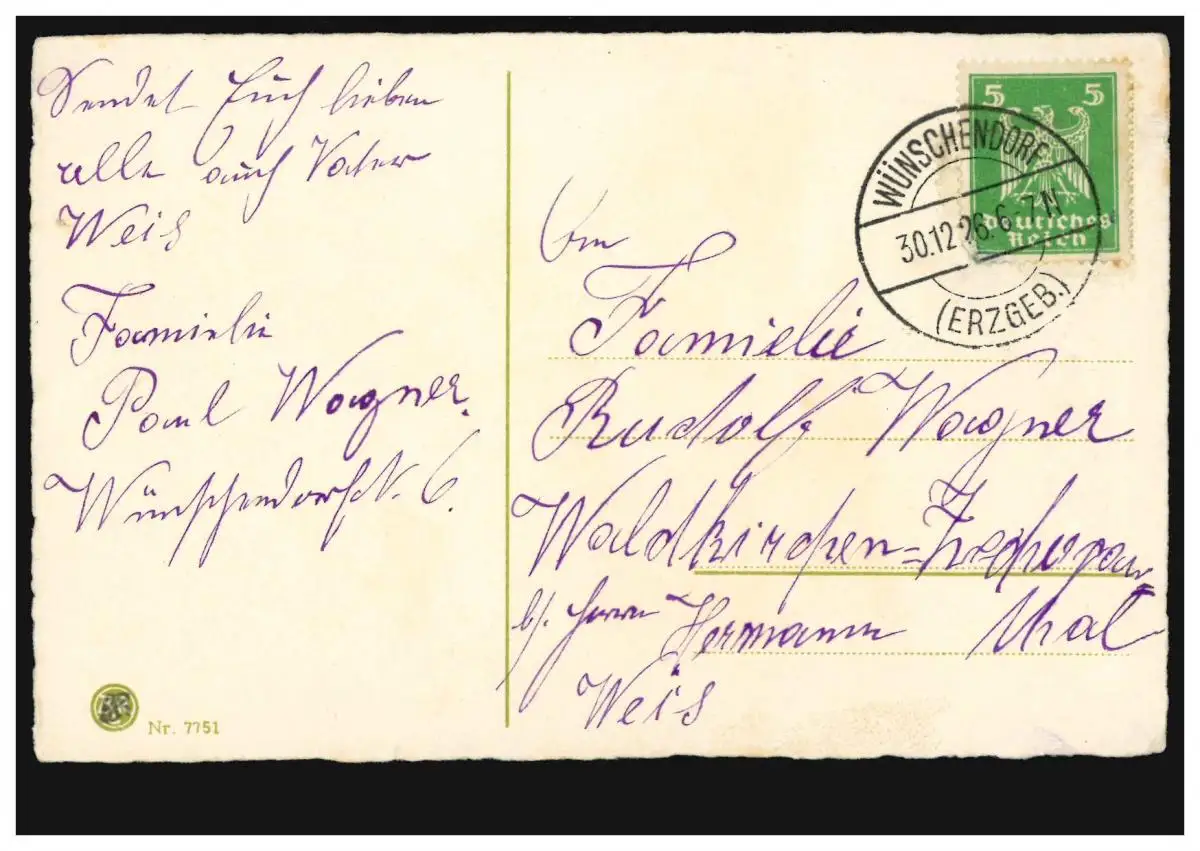 Sendet Euch lieben
alle auch Vater
Weis
Familie
Paul Wagner.
Wünschendorf N. 6.
Nr. 7751
5 5
Deutsches
Reich
WÜNSCHENDORF
30.12.26. 6-7 N
(ERZGEB.)
Familie
Rudolf Wagner
Waldkirchen=Zschopau=
b/. Herrn Hermann thal
Weis